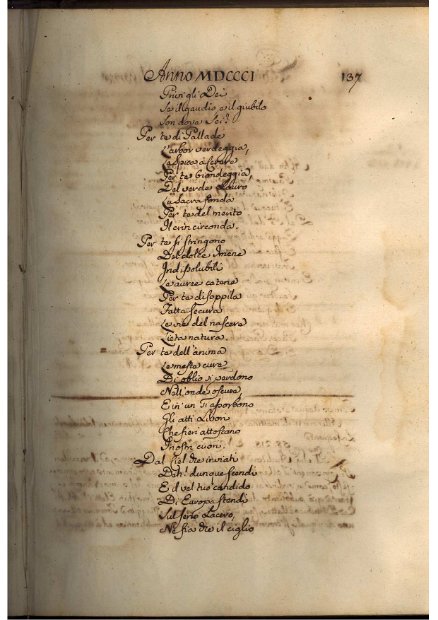 Anno MDCCCI 137
Privi gli Dei
Se il gaudio, e il giubilo
Son dove Sei?
Per te di Pallade
L'arbor verdeggia,
La Spica à Cerere
Per te biondeggia,
Del verde Lauro
La Sacra fronda
Per te del merito
Il crin circonda.
Per te si stringono
Del dolce Imene
Indissolubili
Le auree catene
Per te di
Fatta secura
Le vie del nascere
Lieta natura.
Per te dell'anima
Le meste cure
Di oblio si perdono
Nell'onde oscure,
E in un si assorbono
Gli altri
Che fieri attoscano
I nostri cuori.
Dal Ciel
Dah! dunque scendi
E il vel tuo candido
Di Europa stendi
Sul seno Lacero,
Ne fia che il ciglio